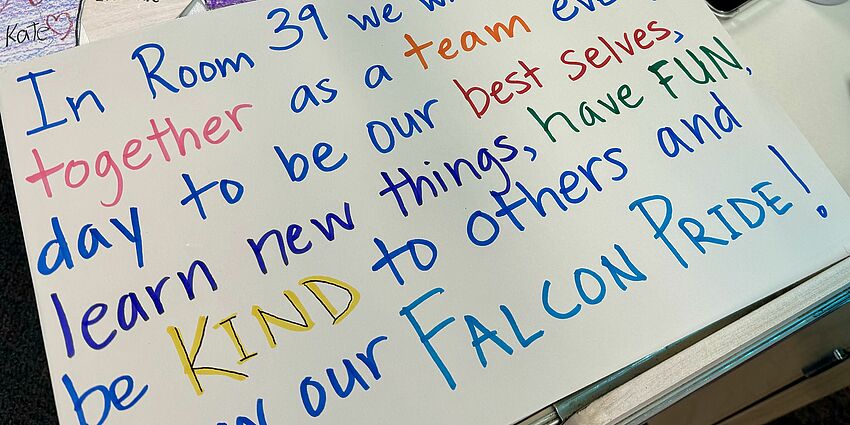 Kate
In Room 39 we
together as a team
day to be our best selves,
learn new things, have FUN,
be KIND to others and
our FALCON PRIDE!